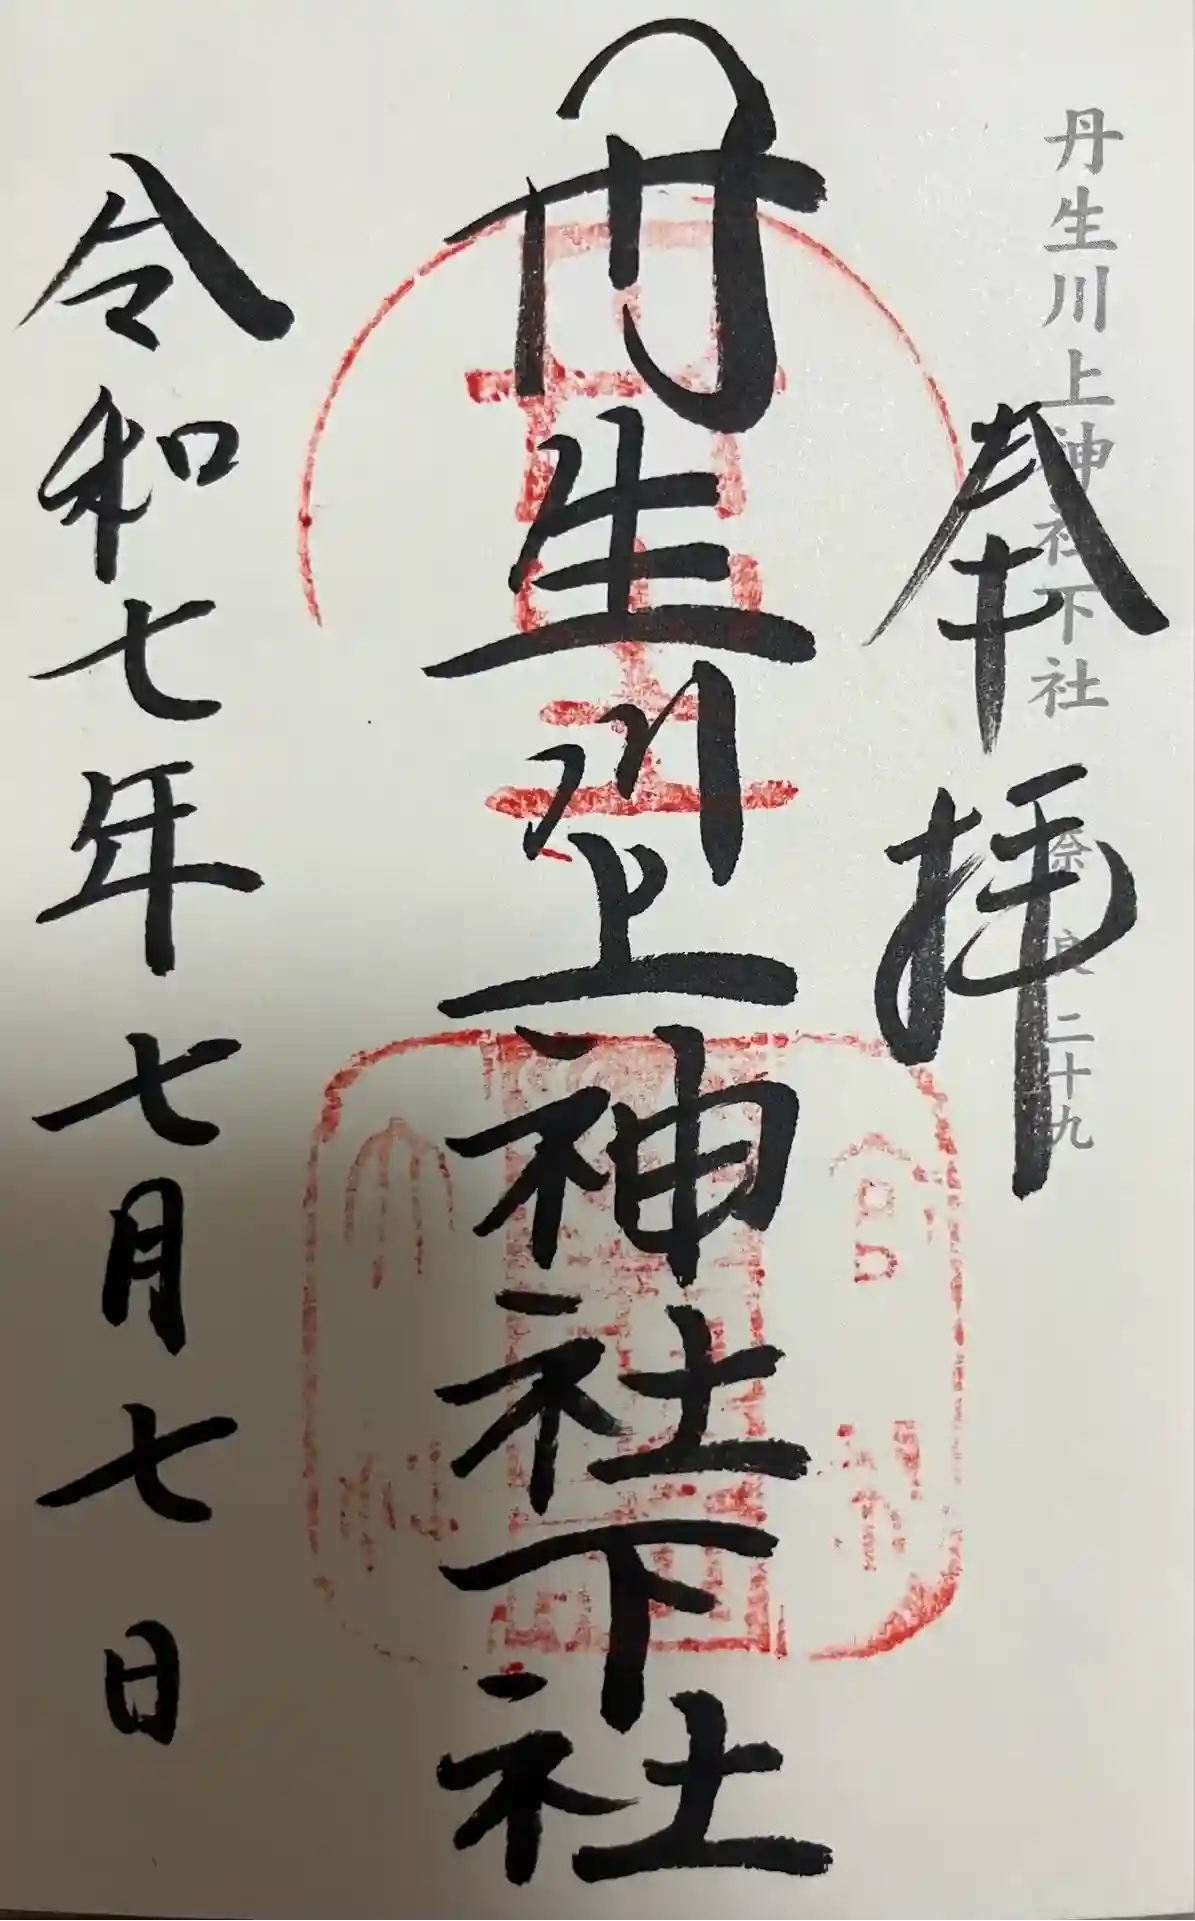 丹生川上神社下社 奈良二十九
奉拝
丹生川上神社下社
令和七年七月七日